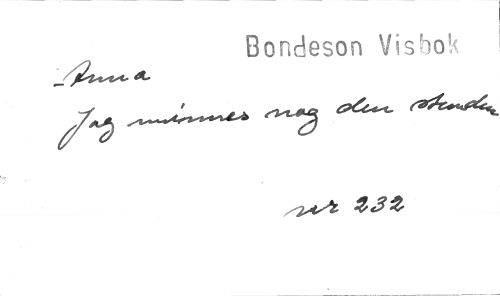 Bondeson Visbok
Anna
Jag minnes nog den stunden
nr 232